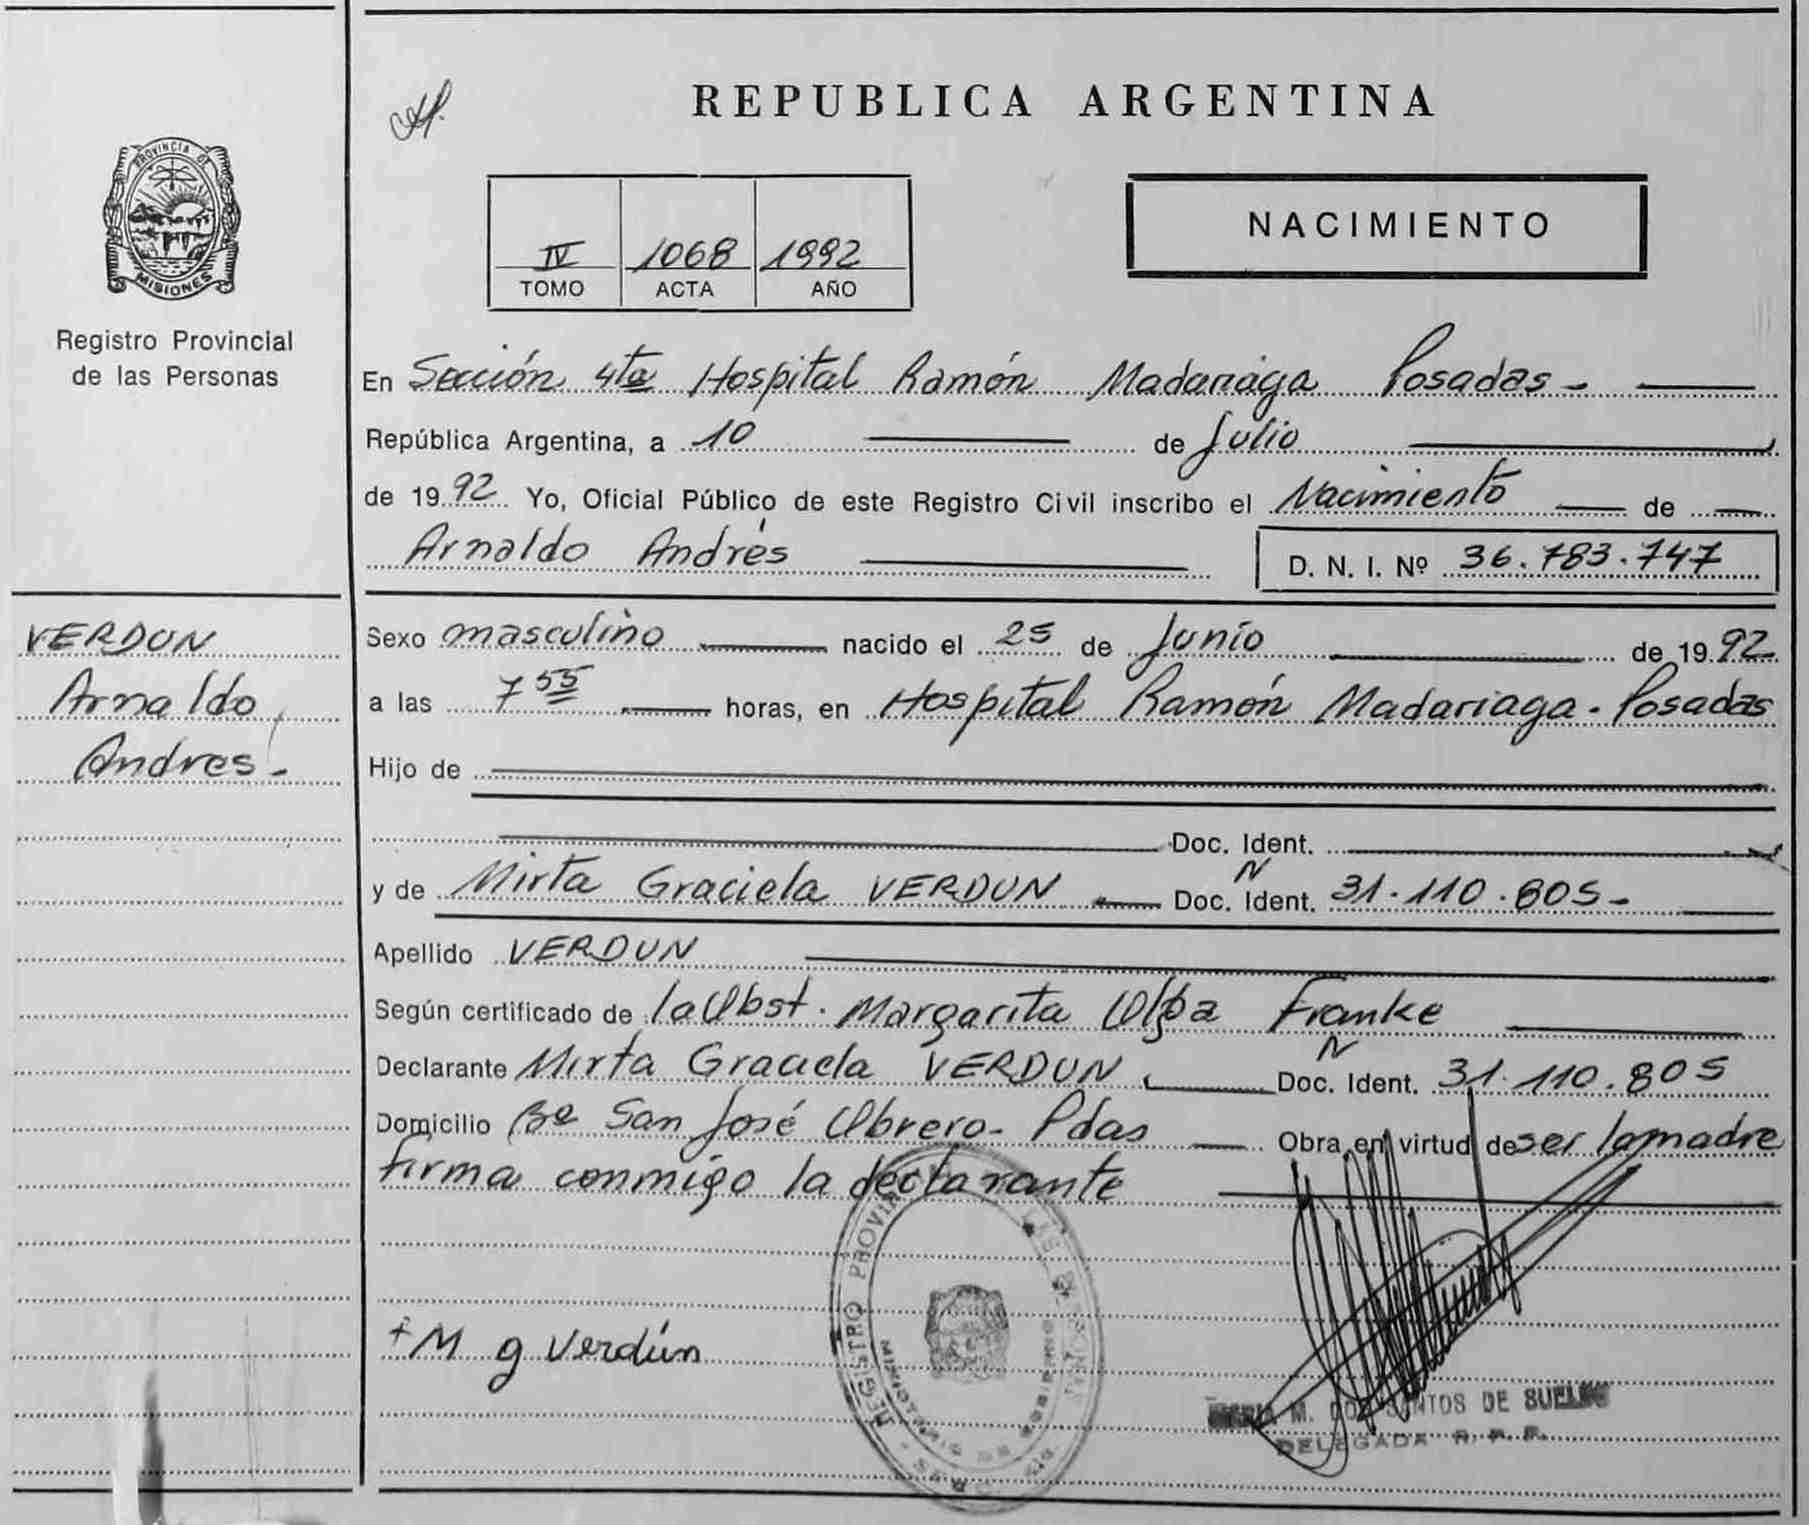 PROVINCIA DE
MISIONES
Registro Provincial
de las Personas
VERDUN
Arnaldo
Andres-
REPUBLICA ARGENTINA
IV 1068 1992
TOMO ACTA AÑO
NACIMIENTO
En Sección 4ta Hospital Ramón Madariaga Posadas-
República Argentina, a 10 de Julio
de 1992 Yo, Oficial Público de este Registro Civil inscribo el Nacimiento de
Arnaldo Andrés D. N. I. Nº 36.783.747
Sexo masculino nacido el 25 de Junio de 1992
a las 7 55 horas, en Hospital Ramón Madariaga. Posadas
Hijo de
Doc. Ident.
y de Mirta Graciela VERDUN Doc. Ident. N 31.110.805-
Apellido VERDUN
Según certificado de la Obst. Margarita Olga Franke
Declarante Mirta Graciela VERDUN Doc. Ident. N 31.110.805
Domicilio Bº San José Obrero- Pdas Obra en virtud de ser la madre
firma conmigo la declarante
M g Verdún
REGISTRO PROVINCIAL DE LAS PERSONAS
M. DOS SANTOS DE
DELEGADA R. P. P.